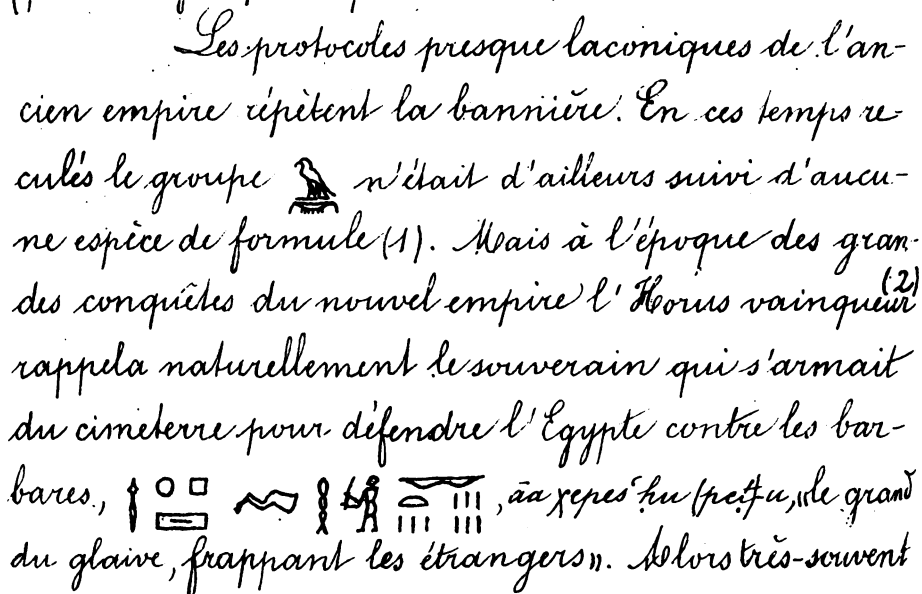 Les protocoles presque laconiques de l'an-
cien empire répètent la bannière. En ces temps re-
culés le groupe 𓅊 n'était d'ailleurs suivi d'aucu-
ne espèce de formule (1). Mais à l'époque des gran-
des conquêtes du nouvel empire l'Horus vainqueur (2)
rappela naturellement le souverain qui s'armait
du cimeterre pour défendre l'Egypte contre les bar-
bares, , āa χepeš hu petu, "le grand
du glaive, frappant les étrangers". Alors très-souvent